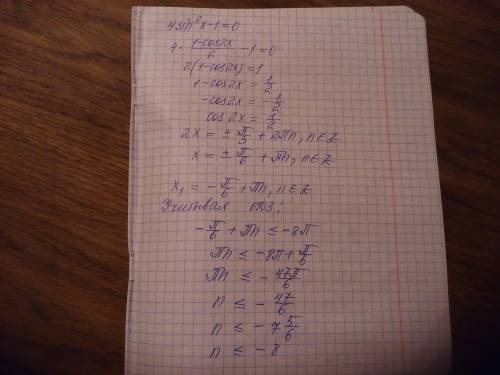 4sin²x-1=0
4·(1-cos2x)/2-1=0
2(1-cos2x)=1
1-cos2x=1/2
-cos2x=-1/2
cos2x=1/2
2x=±π/3+2πn, n∈Z
x=±π/6+πn, n∈Z
x₁=-π/6+πn, n∈Z
Учитывая ОДЗ:
-π/6+πn≤-8π
πn≤-8π+π/6
πn≤-47π/6
n≤-47/6
n≤-7 5/6
n≤-8